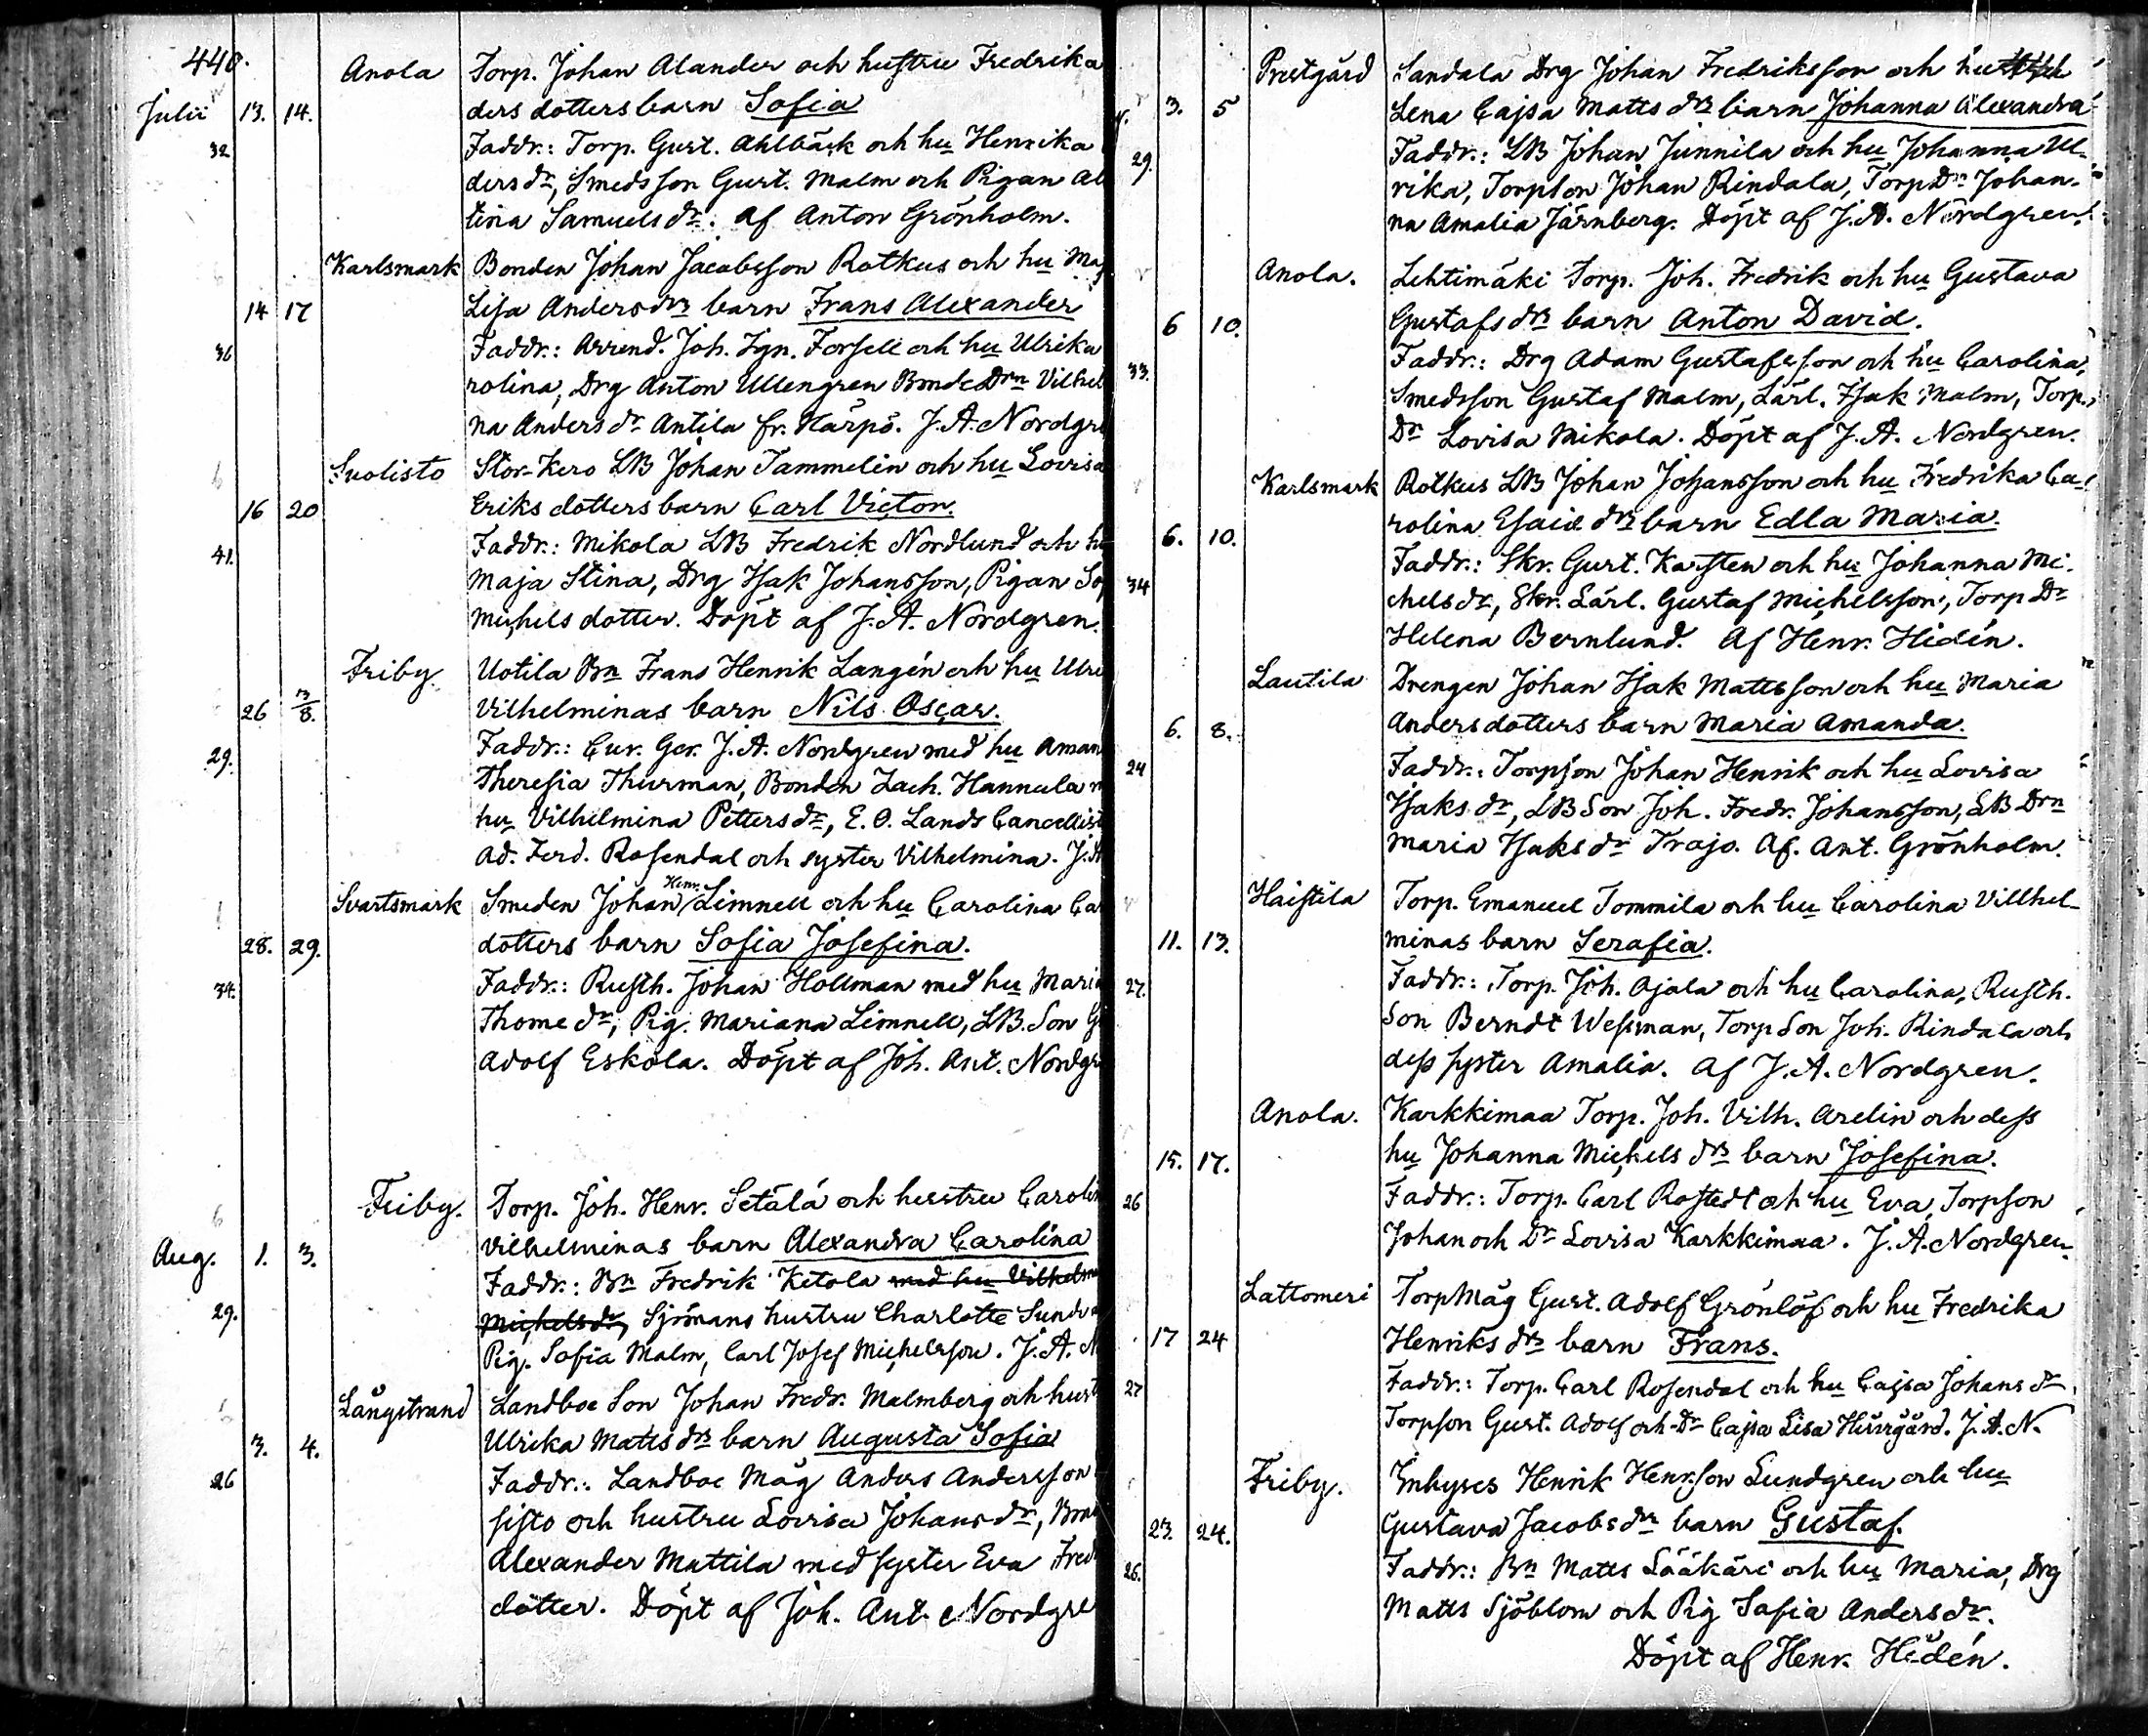 440.
Anola Torp. Johan Alander och hustru Fredrika
Julii 13. 14. ders dotters barn Sofia
32 Faddr.: Torp. Gust. Ahlbäck och hu Henrika
ders dr, Smedsson Gust. Malm och Pigan Al
tina Samuels dr. Af Anton Grönholm.
Karlsmark Bonden Johan Jacobsson Rotkus och hu Maj
14 17 Lisa Anders drs barn Frans Alexander
36 Faddr.: Arrend. Joh. Ign. Forsell och hu Ulrika
rolina, Drg Anton Ullengren Bonde Drn Vilhel
na Anders dr Antila fr. Karpö. J. A. Nordgre
Suolisto Stor-Kero LB Johan Tammelin och hu Lovisa
16 20 Eriks dotters barn Carl Victor.
41. Faddr.: Mikola LB Fredrik Nordlund och hu
Maja Stina, Drg Isak Johansson, Pigan So
Michels dotter. Döpt af J. A. Nordgren.
Friby. Uotila Bn Frans Henrik Langén och hu Ulri
26 3/8. Vilhelminas barn Nils Oscar.
29. Faddr.: Cur. Ger. J. A. Nordgren med hu Aman
Theresia Thurman, Bonden Zach. Hannula m
hu Vilhelmina Petters dr, E. O. Lands Cancellist
Ad. Ferd. Rosendal och syster Vilhelmina. J. A
Svartsmark Smeden Johan Henr. Limnell och hu Carolina Car
28. 29. dotters barn Sofia Josefina.
34. Faddr.: Rusth. Johan Hollman med hu Maria
Thome dr, Pig. Mariana Limnell, LB. Son G
Adolf Eskola. Döpt af Joh. Ant. Nordgr
Friby. Torp. Joh. Henr. Setälä och hustru Carolin
Aug. 1. 3. Vilhelminas barn Alexandra Carolina
29. Faddr.: Bn Fredrik Ketola med hu Vilhelm
Michels dr, Sjömans hustru Charlotte Sundv
Pig. Sofia Malm, Carl Josef Michelsson. J. A. N
Långstrand Landboe Son Johan Fredr. Malmberg och hust
3. 4. Ulrika Matts drs barn Augusta Sofia
26 Faddr.: Landboe Måg Anders Andersson
sisto och hustru Lovisa Johans dr, Bon
Alexander Mattila med syster Eva Fred
dotter. Döpt af Joh. Ant. Nordgre
Prestgård Sandala Drg Johan Fredriksson och
3. 5 Lena Cajsa Matts drs barn Johanna Alexandra
29. Faddr.: LB Johan Junnila och hu Johanna Ul-
rika, Torpson Johan Rindala, Torp Drn Johan-
na Amalia Järnberg. Döpt af J. A. Nordgren.
Anola. Lehtimäki Torp. Joh. Fredrik och hu Gustava
6 10. Gustafs drs barn Anton David.
33. Faddr.: Drg Adam Gustafsson och hu Carolina,
Smedsson Gustaf Malm, Lärl. Isak Malm, Torp.
Dr Lovisa Mikola. Döpt af J. A. Nordgren.
Karlsmark Rotkus LB Johan Johansson och hu Fredrika Ca-
6. 10. rolina Esaie drs barn Edla Maria.
34 Faddr.: Skr. Gust. Karsten och hu Johanna Mi-
chels dr, Skr. Lärl. Gustaf Michelsson, Torp Dr
Helena Bernlund. Af Henr. Hidén.
Lautila Drengen Johan Isak Mattsson och hu Maria
6. 8. Anders dotters barn Maria Amanda.
24 Faddr.: Torpson Johan Henrik och hu Lovisa
Isaks dr, LB Son Joh. Fredr. Johansson, LB Drn
Maria Isaks dr Trajo. Af. Ant. Grönholm.
Haistila Torp. Emanuel Tommila och hu Carolina Villhel-
11. 13. minas barn Serafia.
27. Faddr.: Torp. Joh. Ojala och hu Carolina, Rusth.
Son Berndt Wessman, Torp Son Joh. Rindala och
dess syster Amalia. Af J. A. Nordgren.
Anola. Karkkimaa Torp. Joh. Vilh. Arelin och dess
15. 17. hu Johanna Michels drs barn Josefina.
26 Faddr.: Torp. Carl Rostedt och hu Eva, Torpson
Johan och Dr Lovisa Karkkimaa. J. A. Nordgren.
Lattomeri Torp Måg Gust. Adolf Grönlöf och hu Fredrika
17 24 Henriks drs barn Frans.
27 Faddr.: Torp. Carl Rosendal och hu Cajsa Johans dr,
Torpson Gust. Adolf och Dr Cajsa Lisa Hürrgård. J. A. N.
Friby. Inhyses Henrik Henr.son Lundgren och hu
23. 24. Gustava Jacobs drs barn Gustaf.
26. Faddr.: Bn Matts Lääkäri och hu Maria, Drg
Matts Sjöblom och Pig Safia Anders dr.
Döpt af Henr. Hidén.